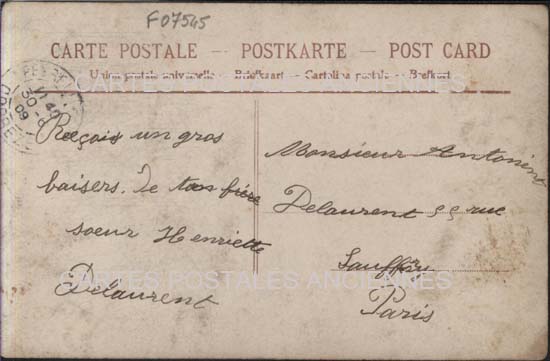 F07545
CARTE POSTALE — POSTKARTE — POST CARD
Union postale universelle — Briefkaart — Cartolina postale — Brefkort
CARTES POSTALES ANCIENNES
30
09
Reçois un gros
baisers. De ton frére
soeur Henriette
Delaurent
Monsieur Antonin
Delaurent 55 rue
Paris
CARTES POSTALES ANCIENNES